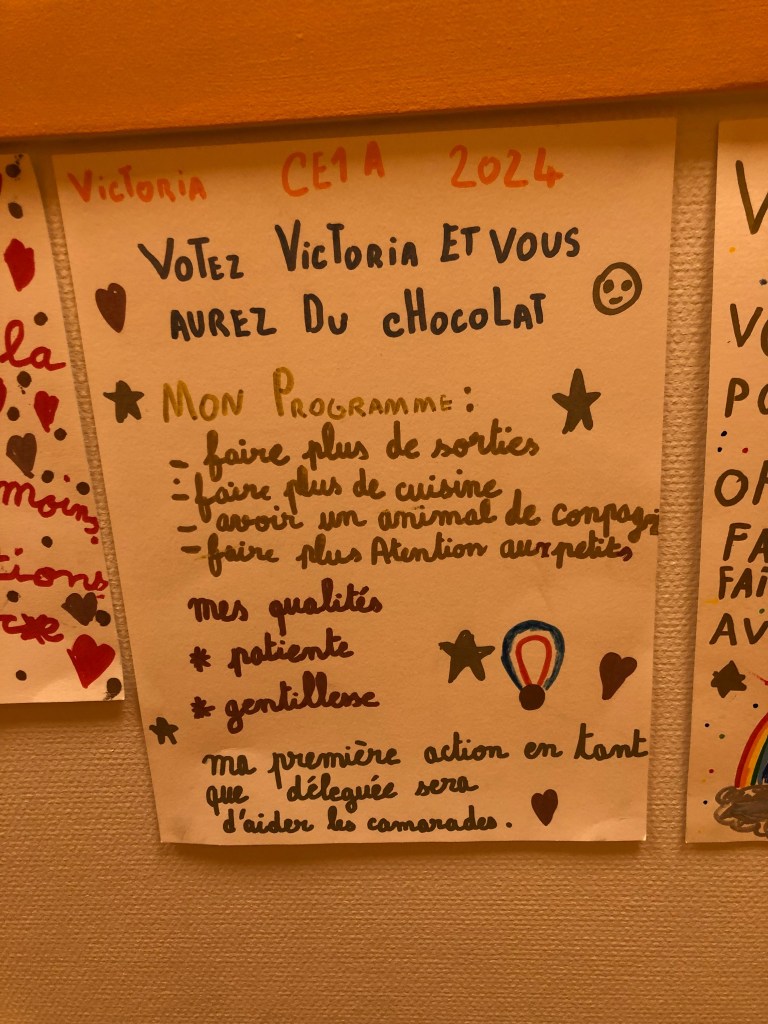 Victoria CE1A 2024
Votez Victoria Et vous
aurez du chocolat
Mon Programme:
- faire plus de sorties
- faire plus de cuisine
- avoir un animal de conpagi
- faire plus Atention aux petits
mes qualités
* patiente
* gentillesse
ma première action en tant
que déleguée sera
d'aider les camarades.
la
moins
tions
V
PO
FA
FAI
AV